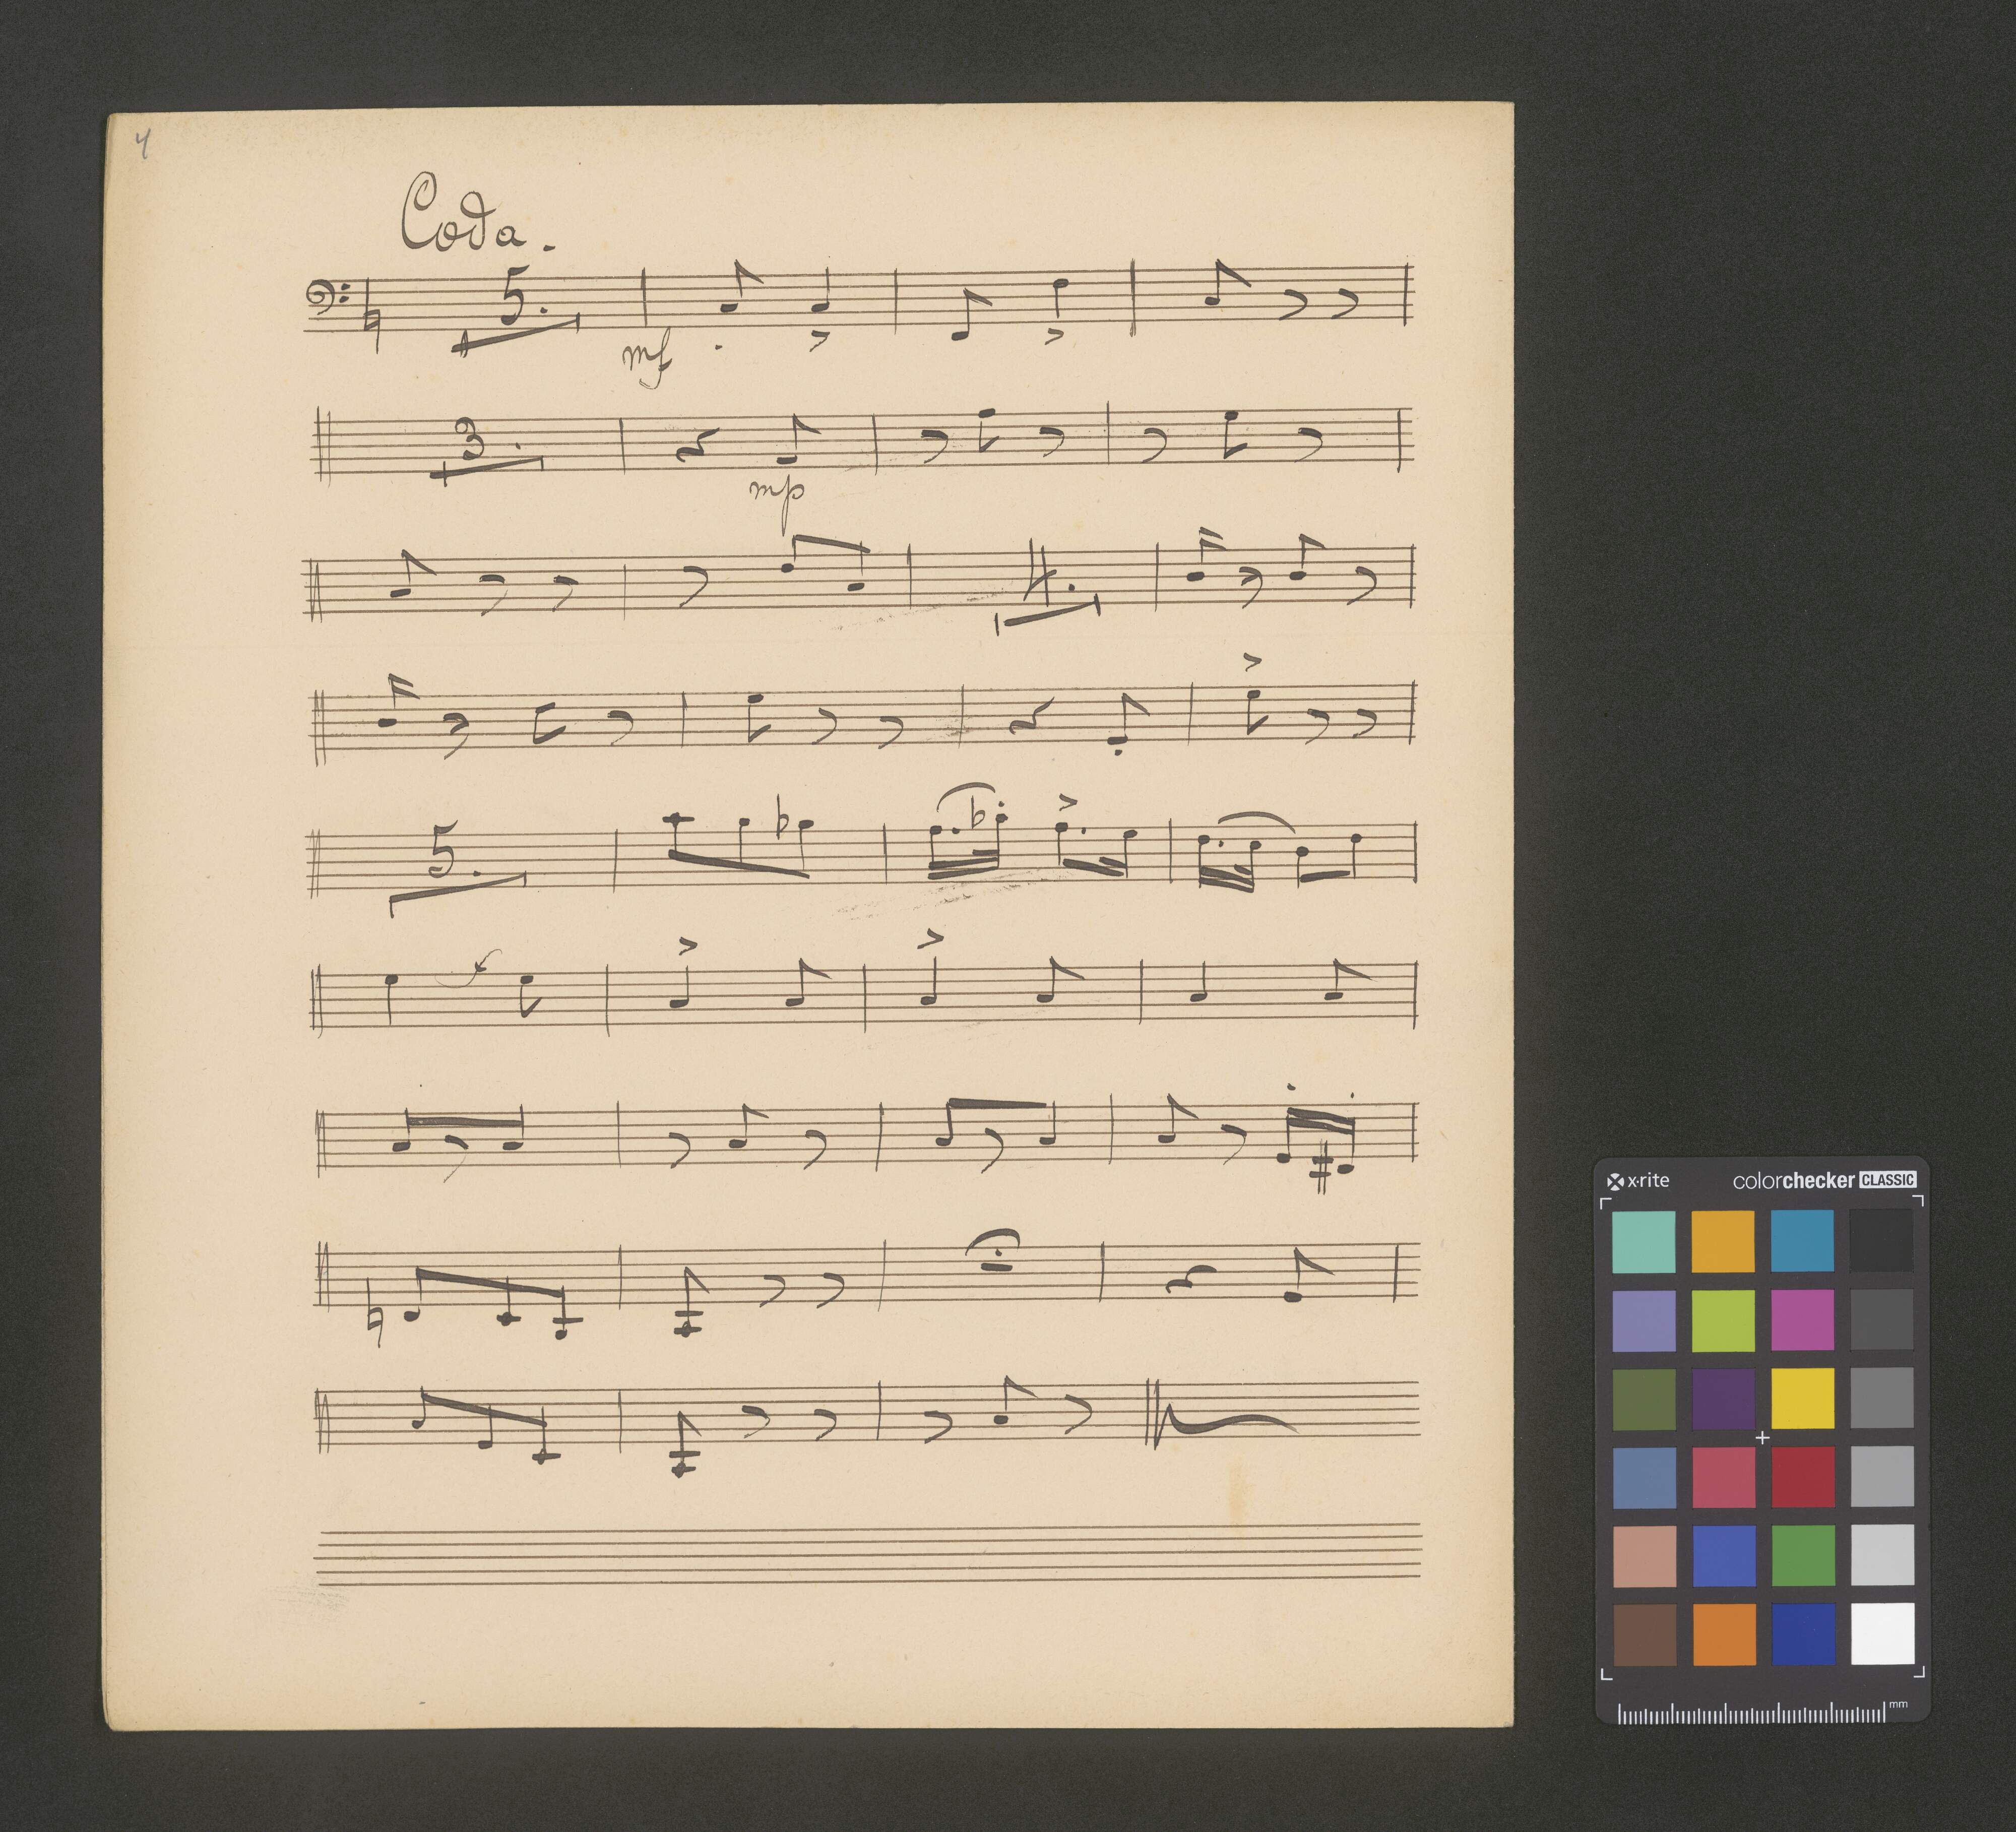 4
Coda.
5.
mf
3.
mp
4.
5.
x-rite colorchecker CLASSIC
mm